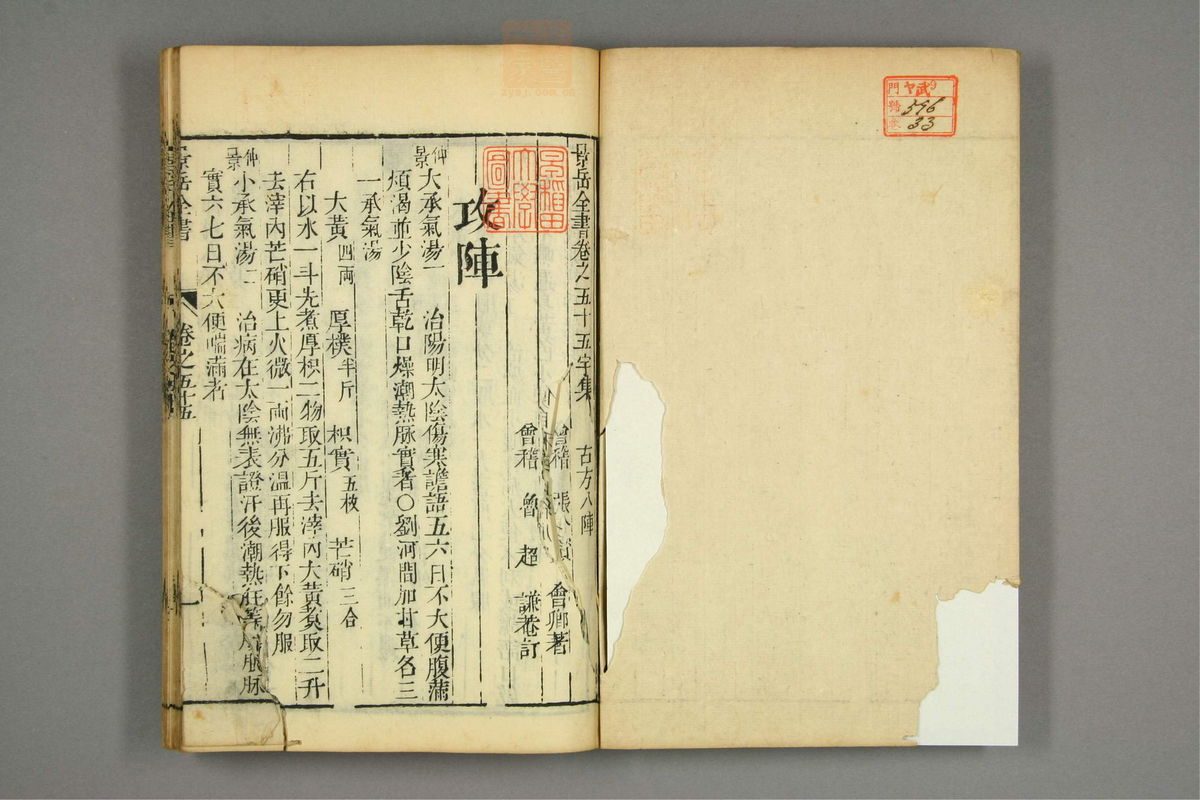 門 ヤ武9
號 596
卷 33
早稻田
大學
圖書
景岳全書卷之五十五字集 古方八陣
會稽 張 會卿著
會稽 魯 超 謙菴訂
攻陣
仲景大承氣湯一 治陽明太陰傷寒譫語五六日不大便腹滿
煩渴並少陰舌乾口燥潮熱脉實者○劉河間加甘草名三
一承氣湯
大黃四兩 厚樸半斤 枳實五枚 芒硝三合
右以水一斗先煮厚枳二物取五斤去滓內大黃煑取二升
去滓內芒硝更上火微一兩沸分溫再服得下餘勿服
仲景小承氣湯二 治病在太陰無表證汗後潮熱狂等 脉
實六七日不大便喘滿者
景岳全書 卷之五十五